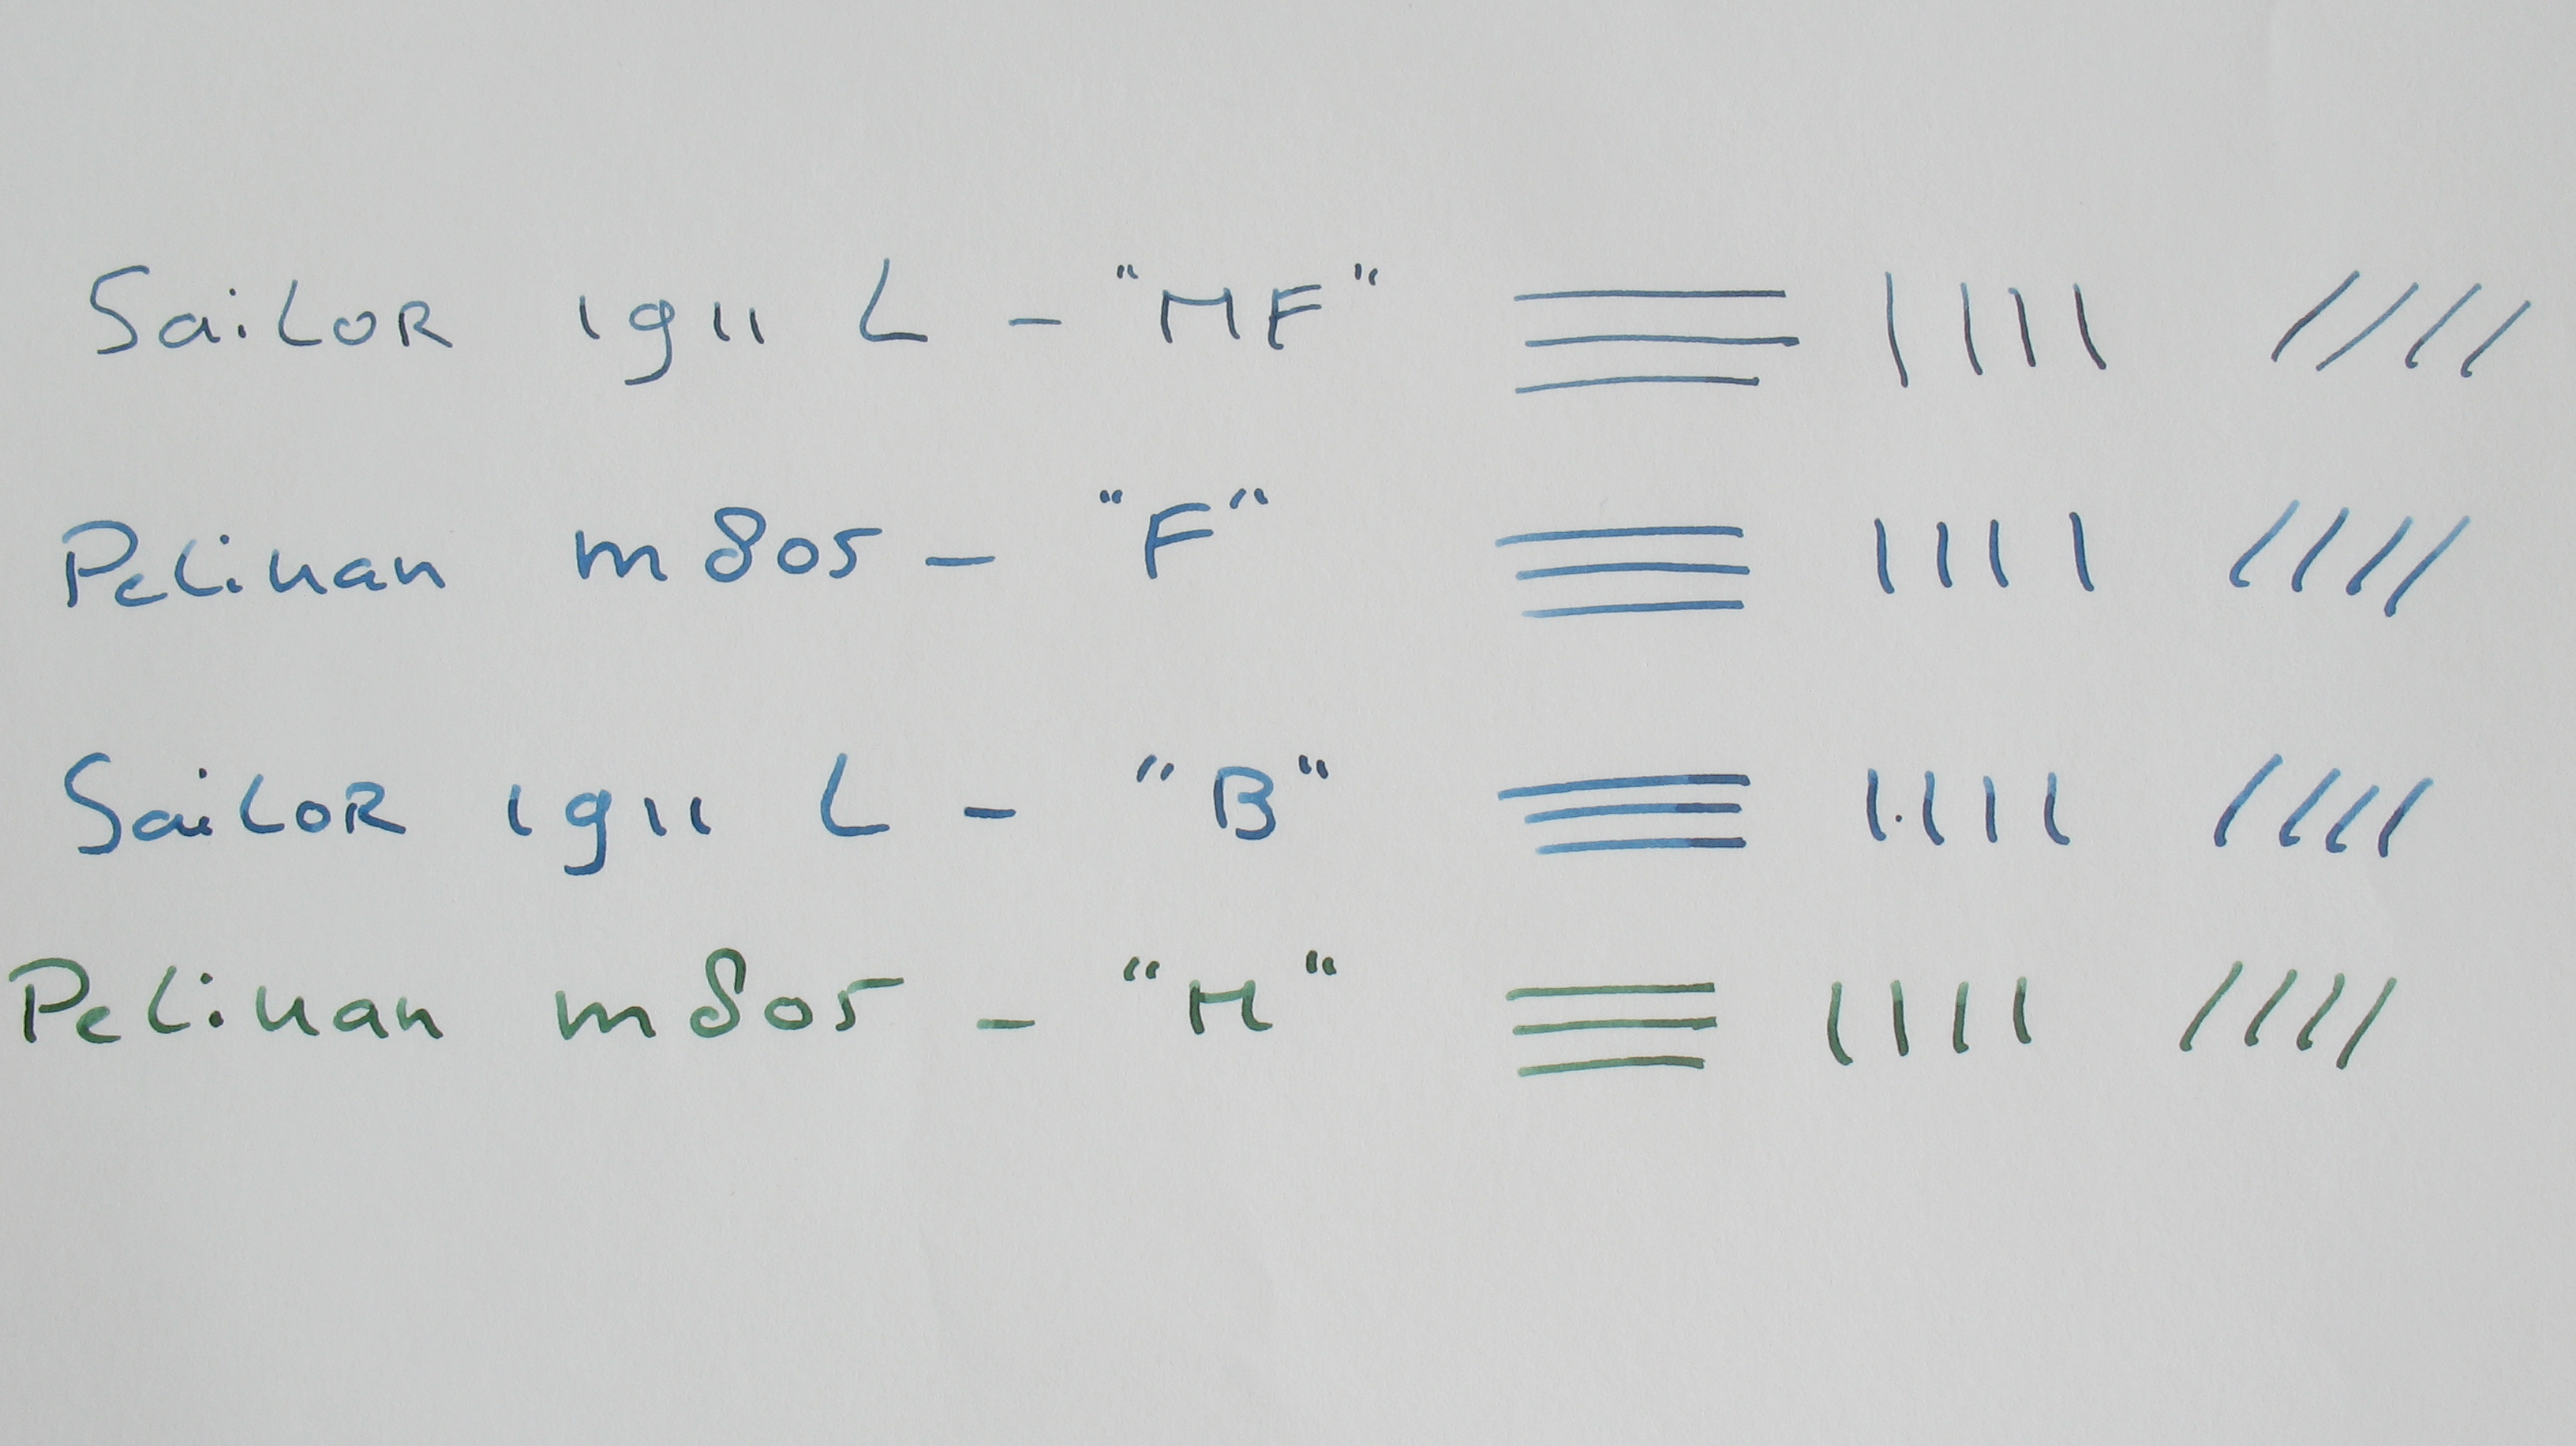 Sailor 1911 L - "MF"
Pelikan m805 - "F"
Sailor 1911 L - "B"
Pelikan m805 - "M"